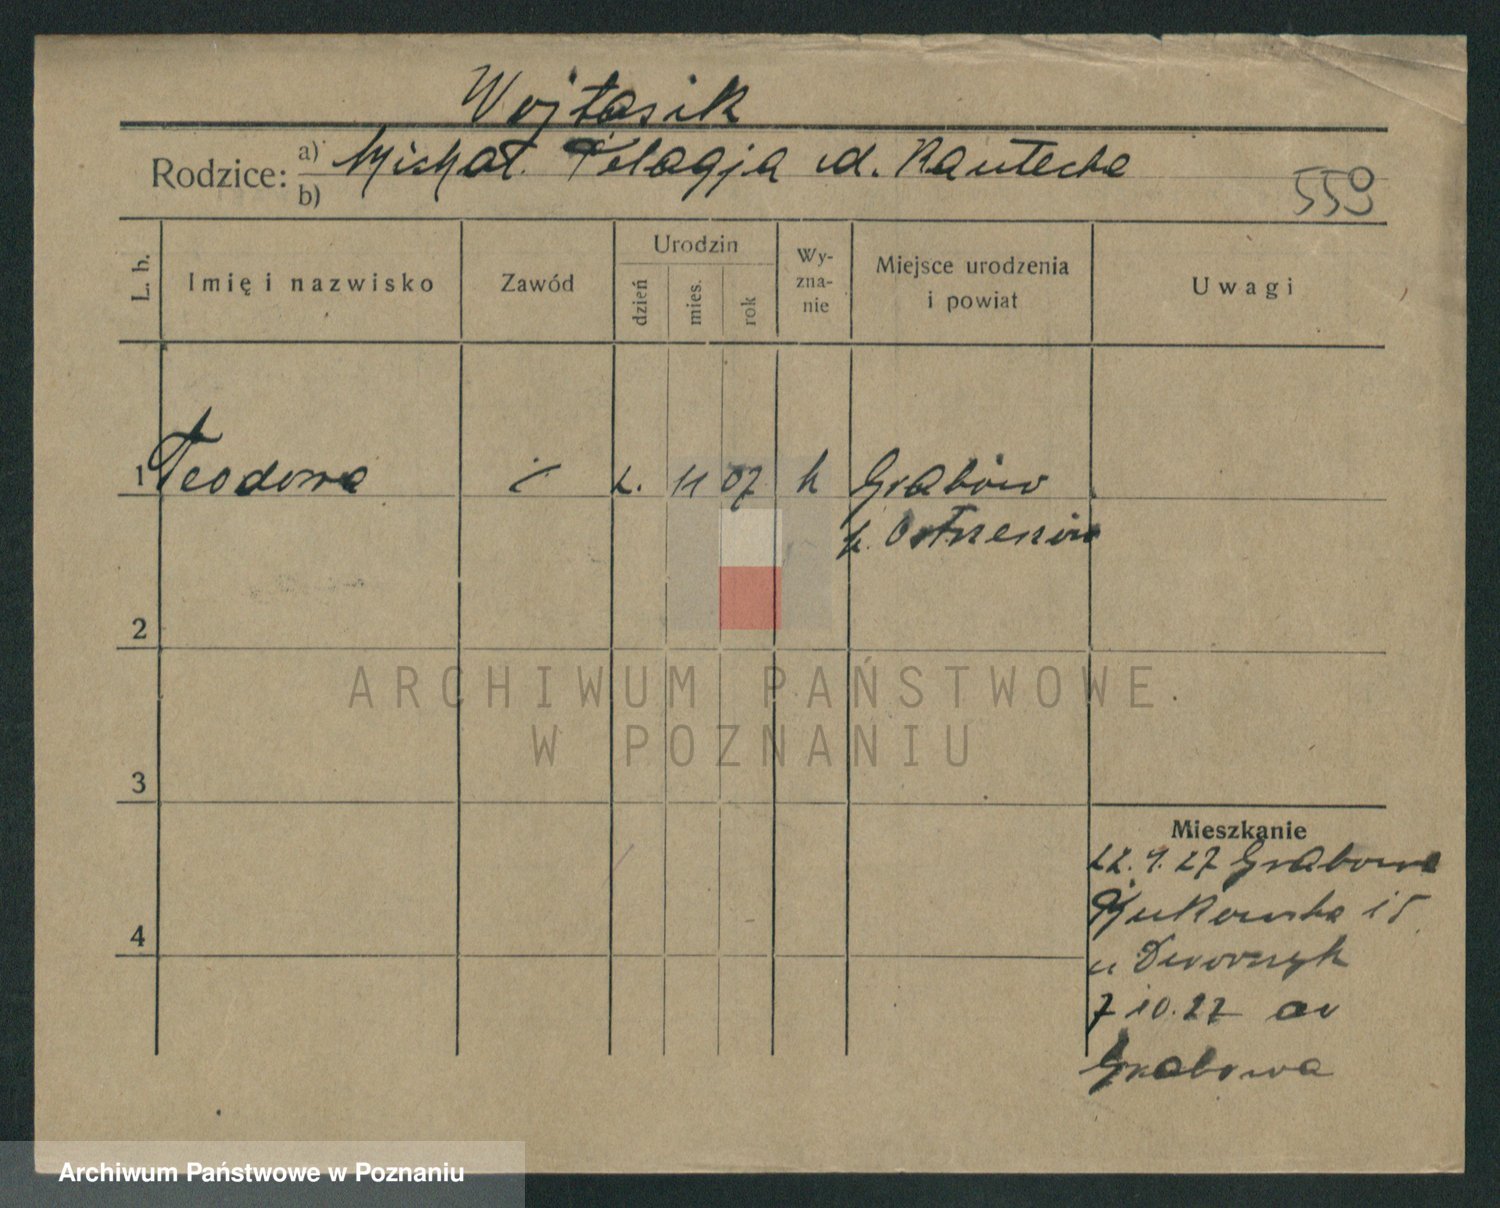 Wojtasik
Rodzice: a) Michał. Pelagja ud. Rautecka
b)
559
L. b. Imię i nazwisko Zawód Urodzin dzień mies. rok Wy-zna-nie Miejsce urodzenia i powiat Uwagi
1 Teodora 2. 11 07 k Grabów
p. Ostrzeszów
2
ARCHIWUM PAŃSTWOWE
W POZNANIU
3
Mieszkanie
22. 9. 27 Grabowa
15
4
u Dworczyk
7 10. 27 do
Grabowa
Archiwum Państwowe w Poznaniu